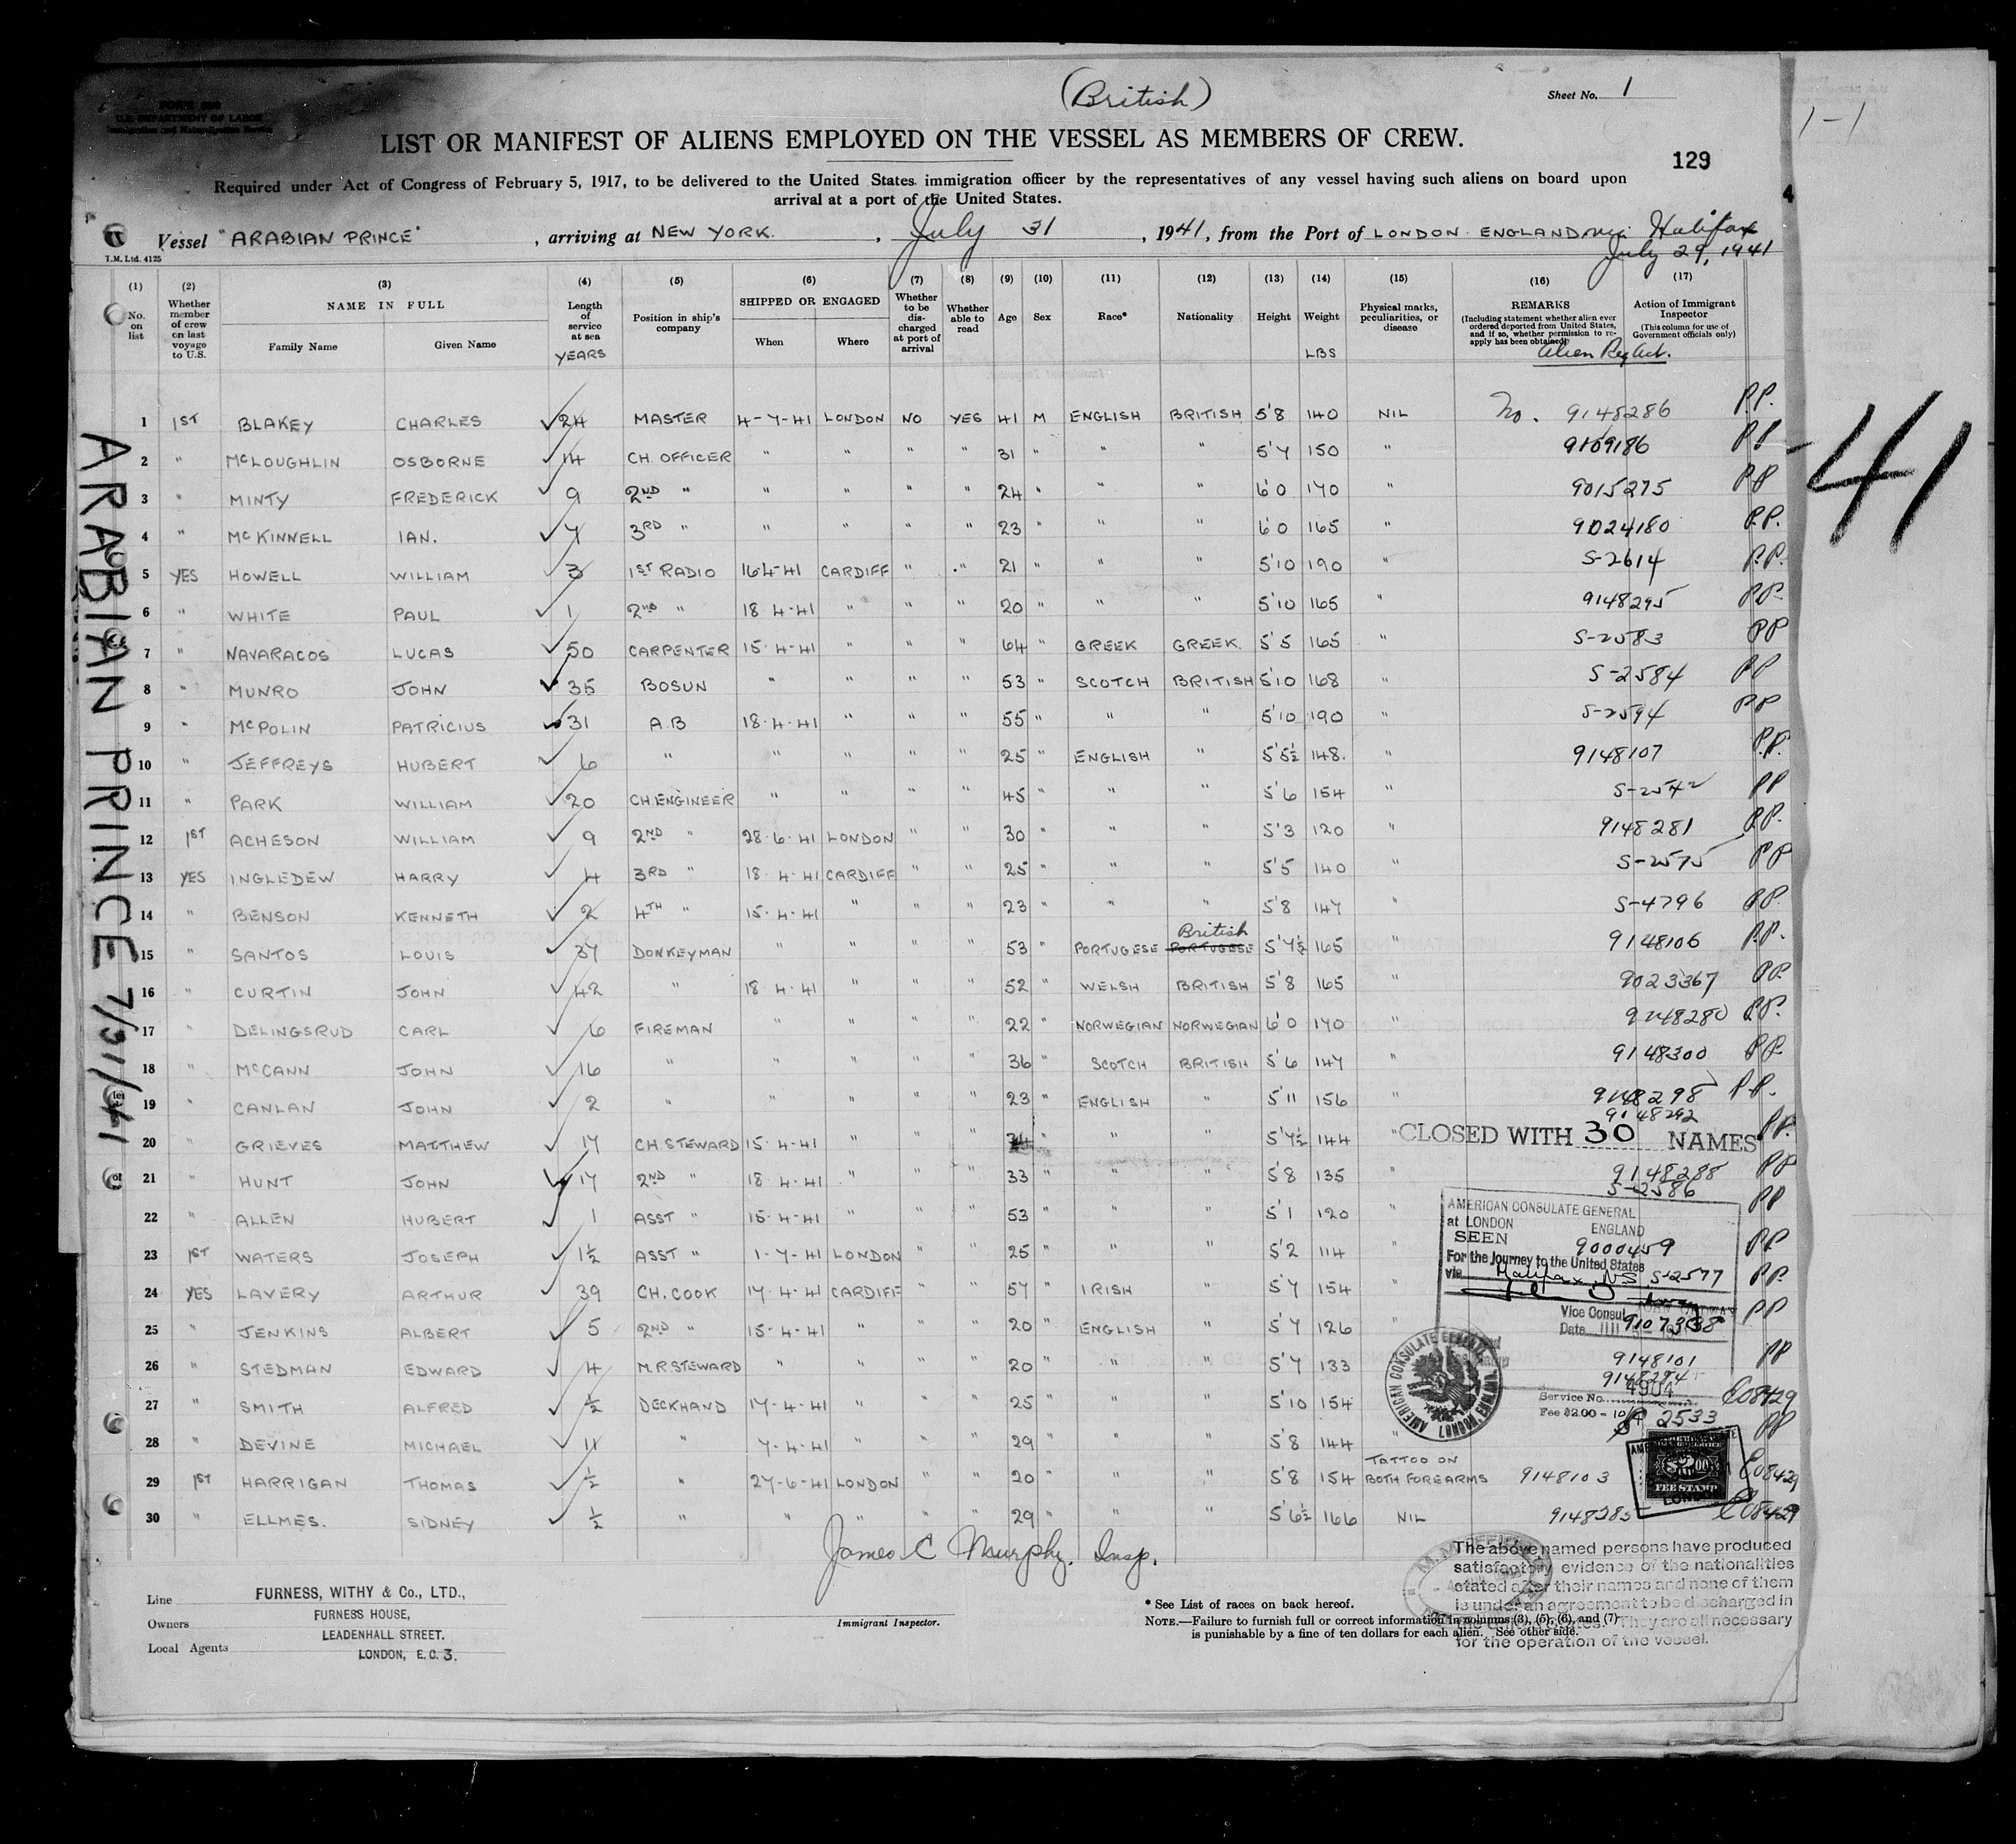 (British)
Sheet No. 1
FORM 689
U.S. DEPARTMENT OF LABOR
Immigration and Naturalization Service
1-1
LIST OR MANIFEST OF ALIENS EMPLOYED ON THE VESSEL AS MEMBERS OF CREW.
129
Required under Act of Congress of February 5, 1917, to be delivered to the United States immigration officer by the representatives of any vessel having such aliens on board upon
arrival at a port of the United States.
4
Vessel "ARABIAN PRINCE", arriving at NEW YORK., July 31, 1941, from the Port of LONDON ENGLAND via Halifax
July 29, 1941
T.M. Ltd. 4125
(1) No. on list (2) Whether member of crew on last voyage to U.S. (3) NAME IN FULL Family Name Given Name (4) Length of service at sea YEARS (5) Position in ship's company (6) SHIPPED OR ENGAGED When Where (7) Whether to be discharged at port of arrival (8) Whether able to read (9) Age (10) Sex (11) Race* (12) Nationality (13) Height (14) Weight LBS (15) Physical marks, peculiarities, or disease (16) REMARKS (Including statement whether alien ever ordered deported from United States, and if so, whether permission to re-apply has been obtained) Alien Reg Act. (17) Action of Immigrant Inspector (This column for use of Government officials only)
1 1ST BLAKEY CHARLES 24 MASTER 4-7-41 LONDON NO YES 41 M ENGLISH BRITISH 5'8 140 NIL No. 9148286 P.P.
2 " McLOUGHLIN OSBORNE 14 CH. OFFICER " " " " 31 " " " 5'7 150 " 9109186 PP
3 " MINTY FREDERICK 9 2ND " " " " " 24 " " " 6'0 170 " 9015275 PP
4 " McKINNELL IAN. 7 3RD " " " " " 23 " " " 6'0 165 " 9024180 P.P.
5 YES HOWELL WILLIAM 3 1ST RADIO 16-4-41 CARDIFF " " 21 " " " 5'10 190 " S-2614 P.P.
6 " WHITE PAUL 1 2ND " 18 4-41 " " " 20 " " " 5'10 165 " 9148295 PP.
7 " NAVARACOS LUCAS 50 CARPENTER 15-4-41 " " " 64 " GREEK GREEK. 5'5 165 " S-2583 PP
8 " MUNRO JOHN 35 BOSUN " " " " 53 " SCOTCH BRITISH 5'10 168 " S-2584 PP
9 " McPOLIN PATRICIUS 31 A.B 18-4-41 " " " 55 " " " 5'10 190 " S-2594 PP
10 " JEFFREYS HUBERT 6 " " " " " 25 " ENGLISH " 5'5½ 148. " 9148107 P.P.
11 " PARK WILLIAM 20 CH.ENGINEER " " " " 45 " " " 5'6 154 " S-2542 PP
12 1ST ACHESON WILLIAM 9 2ND " 28-6-41 LONDON " " 30 " " " 5'3 120 " 9148281 P.P.
13 YES INGLEDEW HARRY 4 3RD " 18-4-41 CARDIFF " " 25 " " " 5'5 140 " S-2575 PP
14 " BENSON KENNETH 2 4TH " 15-4-41 " " " 23 " " " 5'8 147 " S-4796 P.P.
15 " SANTOS LOUIS 37 DONKEYMAN " " " " 53 " PORTUGESE PORTUGESE British 5'7½ 165 " 9148106 P.P.
16 " CURTIN JOHN 42 " 18-4-41 " " " 52 " WELSH BRITISH 5'8 165 " 9023367 P.P.
17 " DELINGSRUD CARL 6 FIREMAN " " " " 22 " NORWEGIAN NORWEGIAN 6'0 170 " 9148280 P.P.
18 " McCANN JOHN 16 " " " " " 36 " SCOTCH BRITISH 5'6 147 " 9148300 P.P.
19 " CANLAN JOHN 2 " " " " " 23 " ENGLISH " 5'11 156 9148298 P.P.
20 " GRIEVES MATTHEW 17 CH.STEWARD 15-4-41 " " " " " " 5'7½ 144 " 9148292 P.P.
CLOSED WITH 30 NAMES
21 " HUNT JOHN 17 2ND " 18-4-41 " " " 33 " " " 5'8 135 " 9148288 PP
22 " ALLEN HUBERT 1 ASST " 15-4-41 " " " 53 " " " 5'1 120 " S-2586 PP
23 1ST WATERS JOSEPH 1½ ASST " 1-7-41 LONDON " " 25 " " " 5'2 114 " 9000459 P.P.
24 YES LAVERY ARTHUR 39 CH. COOK 17-4-41 CARDIFF " " 57 " IRISH " 5'7 154 " S-2577 P.P.
25 " JENKINS ALBERT 5 2ND " 15-4-41 " " " 20 " ENGLISH " 5'7 126 " 9107338 PP
26 " STEDMAN EDWARD 4 M.R.STEWARD " " " " 20 " " " 5'7 133 9148101 PP
27 " SMITH ALFRED ½ DECKHAND 17-4-41 " " " 25 " " " 5'10 154 C08429
28 " DEVINE MICHAEL 11 " 7-4-41 " " " 29 " " " 5'8 144 " 2533 PP
29 1ST HARRIGAN THOMAS ½ " 27-6-41 LONDON " " 20 " " " 5'8 154 TATTOO ON BOTH FOREARMS 9148103 C08429
30 " ELLMES. SIDNEY ½ " " " " " 29 " " " 5'6½ 166 NIL 9148285 C08429
AMERICAN CONSULATE GENERAL
at LONDON ENGLAND
SEEN
For the Journey to the United States
via Halifax N.S.
Vice Consul
Date
Service No. 4904
Fee $2.00 - 10/
AMERICAN CONSULATE GENERAL LONDON, ENGLAND.
$2.00
FEE STAMP
LONDON
James C Murphy. Insp.
Immigrant Inspector.
Line FURNESS, WITHY & Co., LTD.,
Owners FURNESS HOUSE,
LEADENHALL STREET.
Local Agents LONDON, E.C.3.
* See List of races on back hereof.
NOTE.—Failure to furnish full or correct information in columns (3), (5), (6), and (7)
is punishable by a fine of ten dollars for each alien. See other side.
The above named persons have produced
satisfactory evidence of the nationalities
stated after their names and none of them
is under an agreement to be discharged in
They are all necessary
for the operation of the vessel.
ARABIAN PRINCE 7/31/41
41